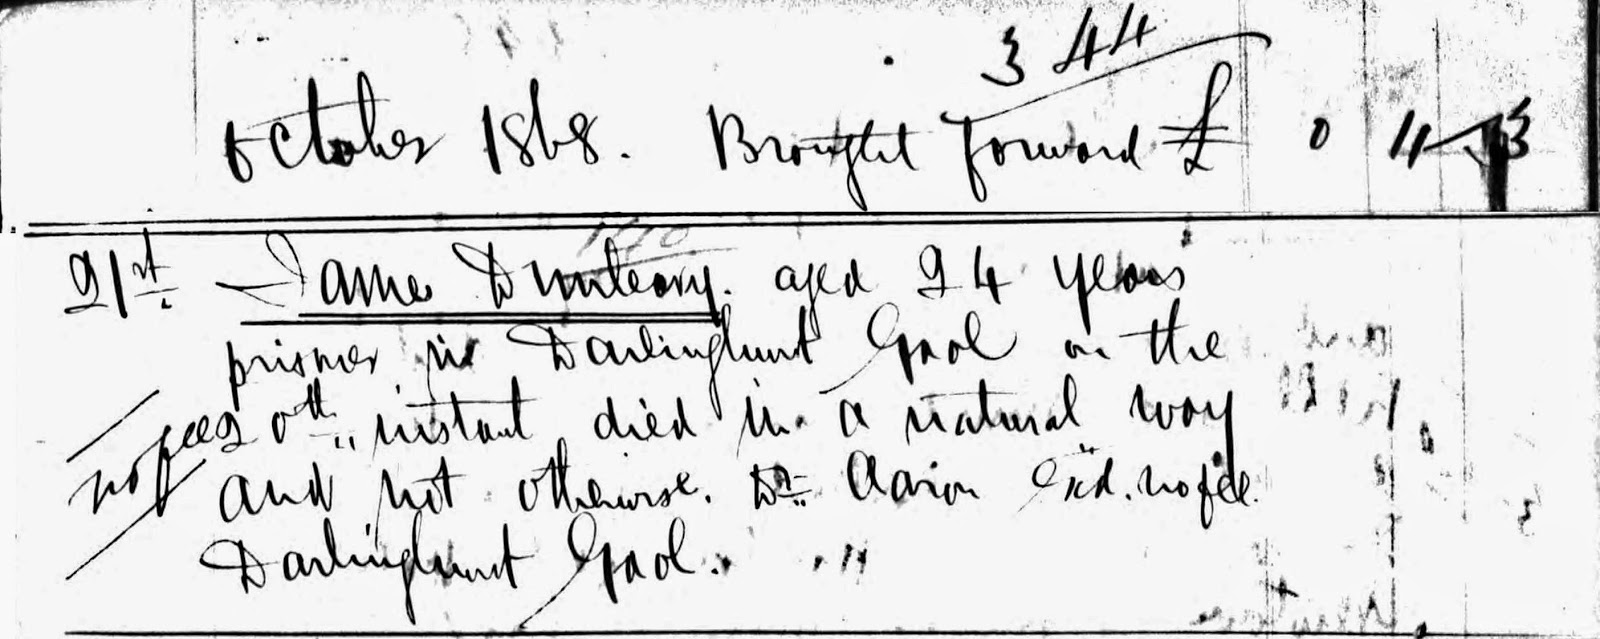 344
October 1868. Brought Forward £ 0 11 3
140
21st James Dunleavy. aged 24 years
prisoner in Darlinghurst Gaol on the
20th instant died in a natural way
no fee
and not otherwise. Dr Aaron Exd. no fee.
Darlinghurst Gaol. "